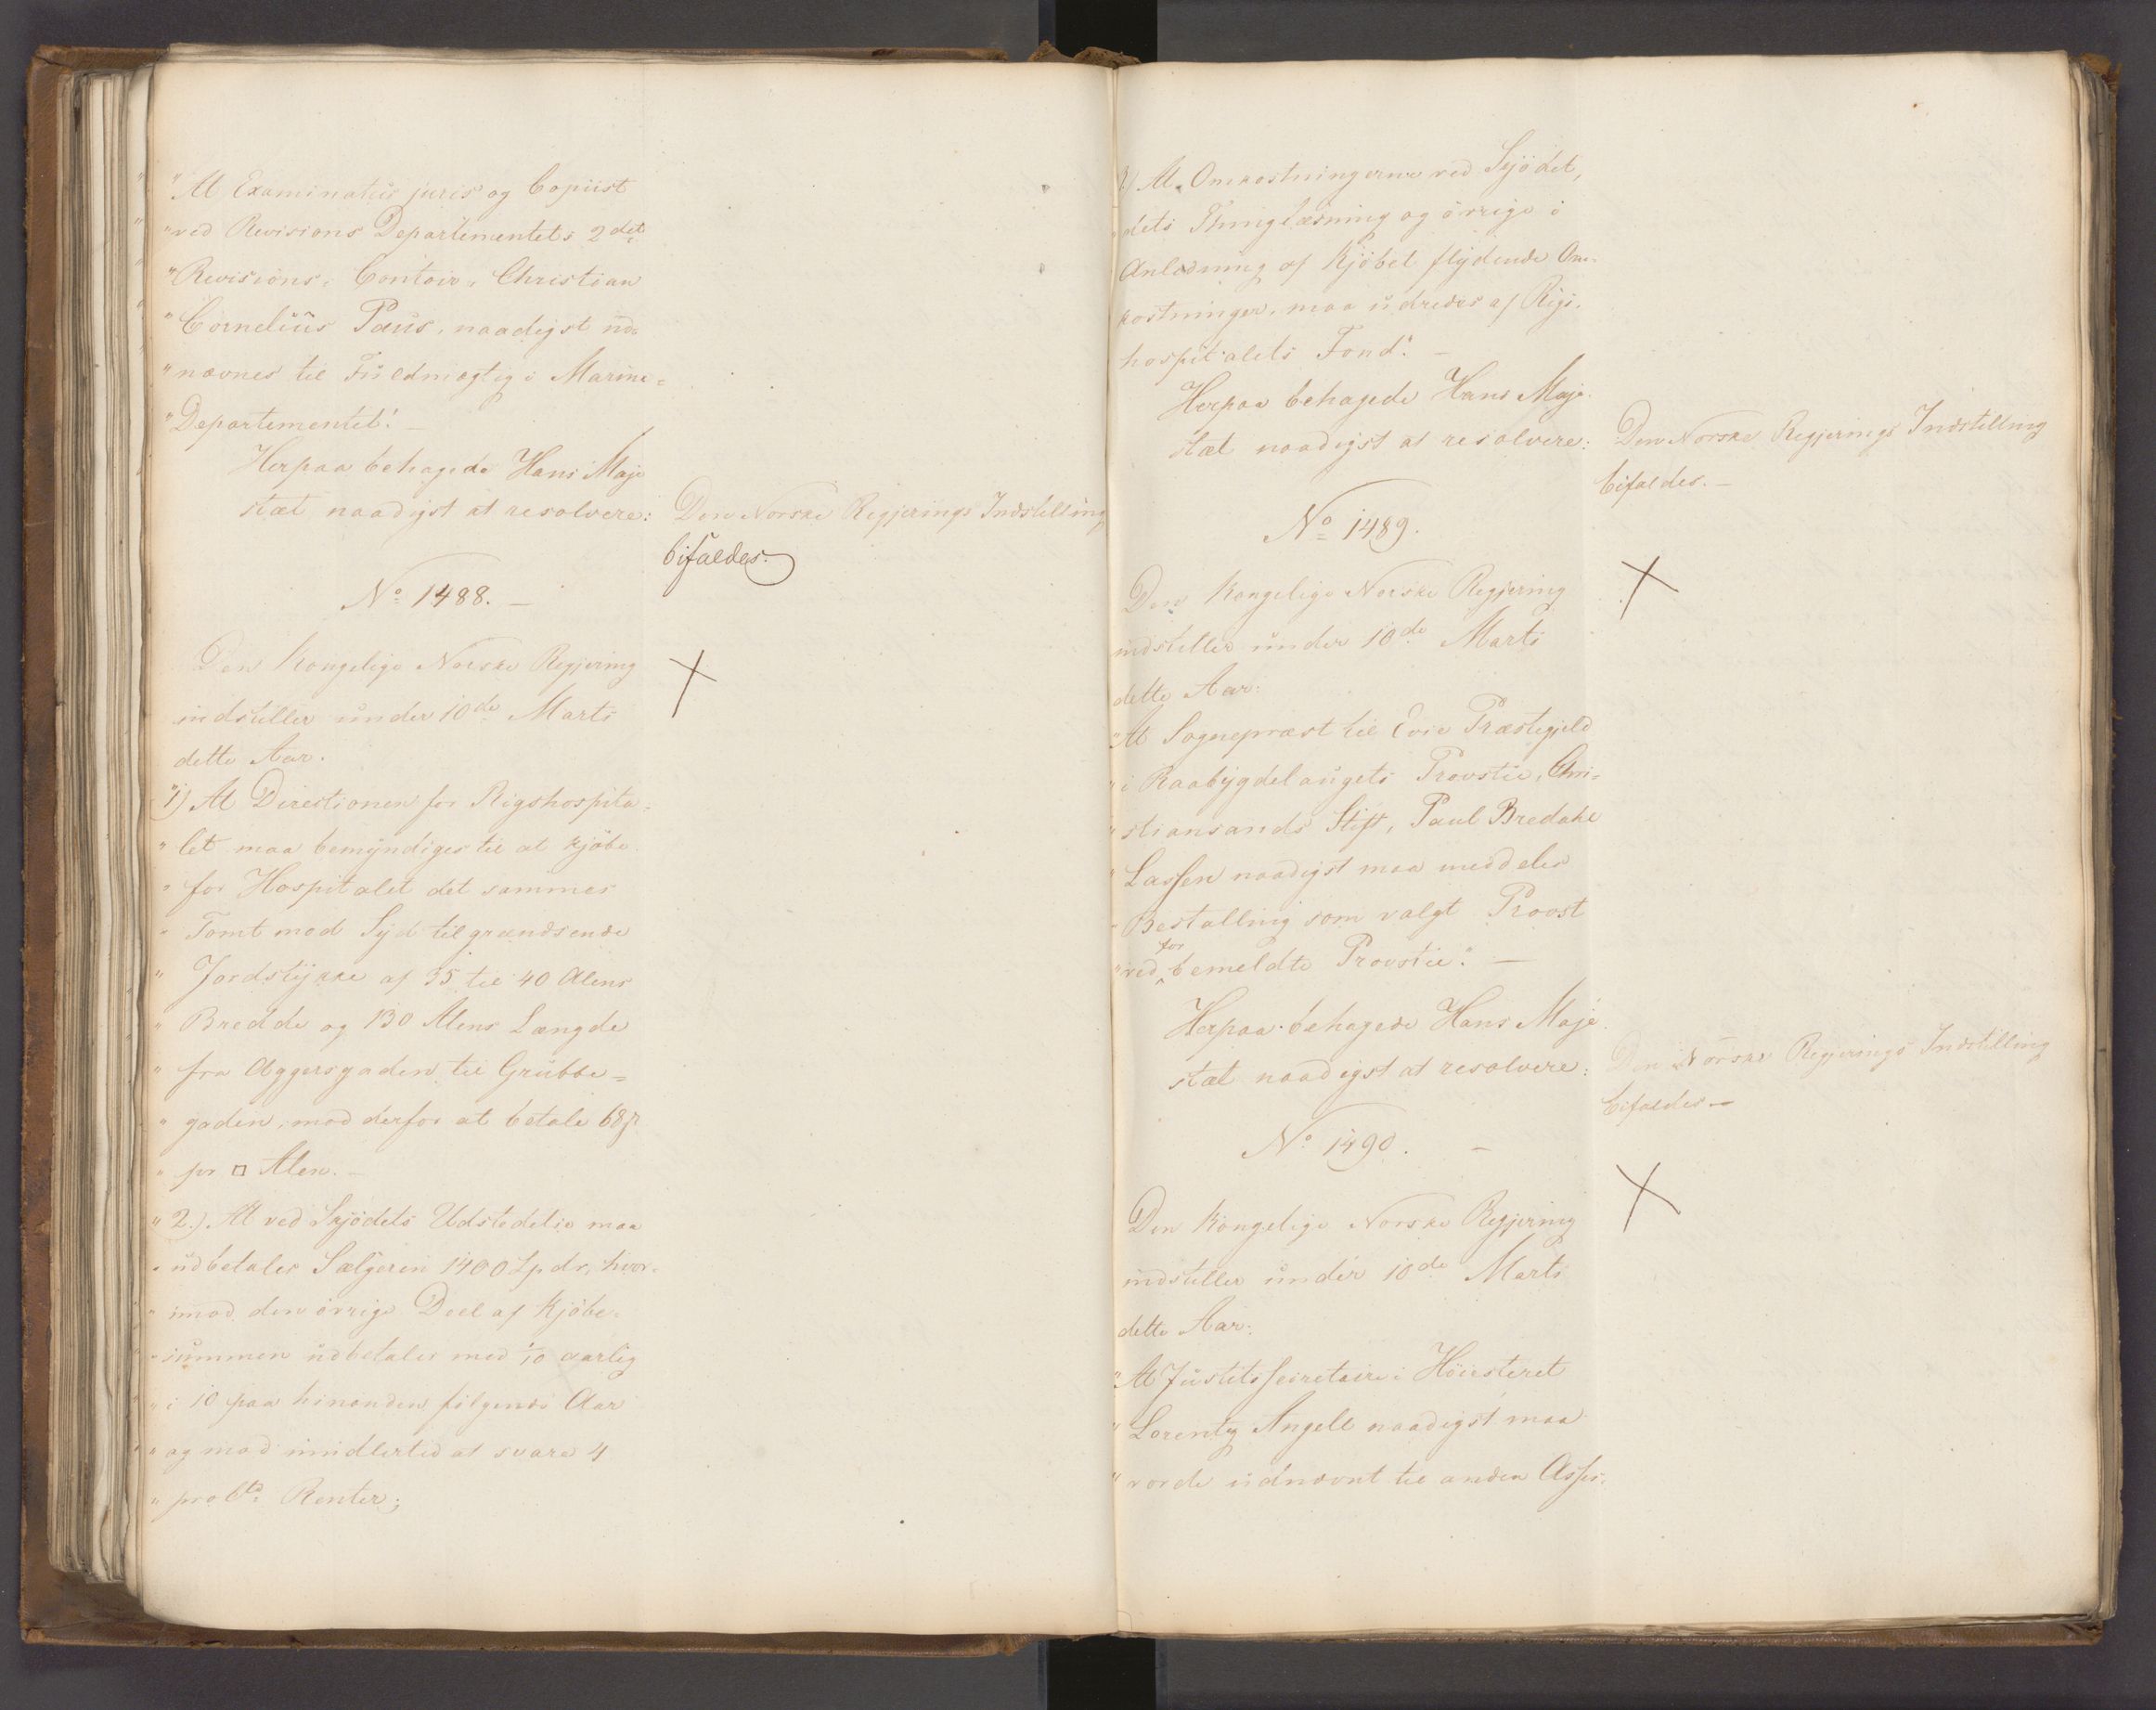 "At Examinatus juris og Copiist
"ved Revisions Departementets 2det
"Revisions-Contoir, Christian
"Cornelius Paus, naadigst ud=
"nævnes til Fuldmægtig i Marine=
"Departementet". —
Herpaa behagede Hans Maje
stæt naadigst at resolvere:
Den Norske Regjerings Indstilling
bifaldes.
No 1488. —
Den Kongelige Norske Regjering
indstiller under 10de Marts
dette Aar.
"1) At Directionen for Rigshospita=
" let maa bemyndiges til at kjöbe
" for Hospitalet det sammes
" Tomt mod Syd tilgrændsende
" Jordstykke af 35 til 40 Alens
" Bredde og 130 Alens Længde
" fra Aggersgaden til Grubbe=
" gaden, mod derfor at betale 68
" pr □ Alen. —
" 2.) At ved Skjödets Udstedelse maa
" udbetales Sælgeren 1400 Spdr, hvor=
" imod den övrige Deel af Kjöbe=
" summen udbetales med 1/10 aarlig
" i 10 paa hinanden fölgende Aar
" og mod imidlertid at svare 4
" proCto Renter;
3) At Omkostningerne ved Skjödet,
" dets Thinglæsning og övrige i
Anledning af Kjöbet flydende Om=
kostninger, maa udredes af Rigs=
hospitalets Fond". —
Herpaa behagede Hans Maje
stæt naadigst at resolvere:
Den Norske Regjerings Indstilling
bifaldes. —
No 1489.
Den Kongelige Norske Regjering
indstiller under 10de Marts
dette Aar:
"At Sognepræst til Evie Præstegjeld
" i Raabygdelaugets Provstie, Chri=
" stiansands Stift, Paul Bredahl
" Lassen naadigst maa meddeles
" Bestalling som valgt Provst
for
"ved bemeldte Provstie". —
Herpaa behagede Hans Maje
stæt naadigst at resolvere:
Den Norske Regjerings Indstilling
bifaldes —
No 1490. —
Den Kongelige Norske Regjering
indstiller under 10de Marts
dette Aar:
"At Justitssecretaire i Höiesteret
" Lorentz Angell naadigst maa
" vorde udnævnt til anden Asses=